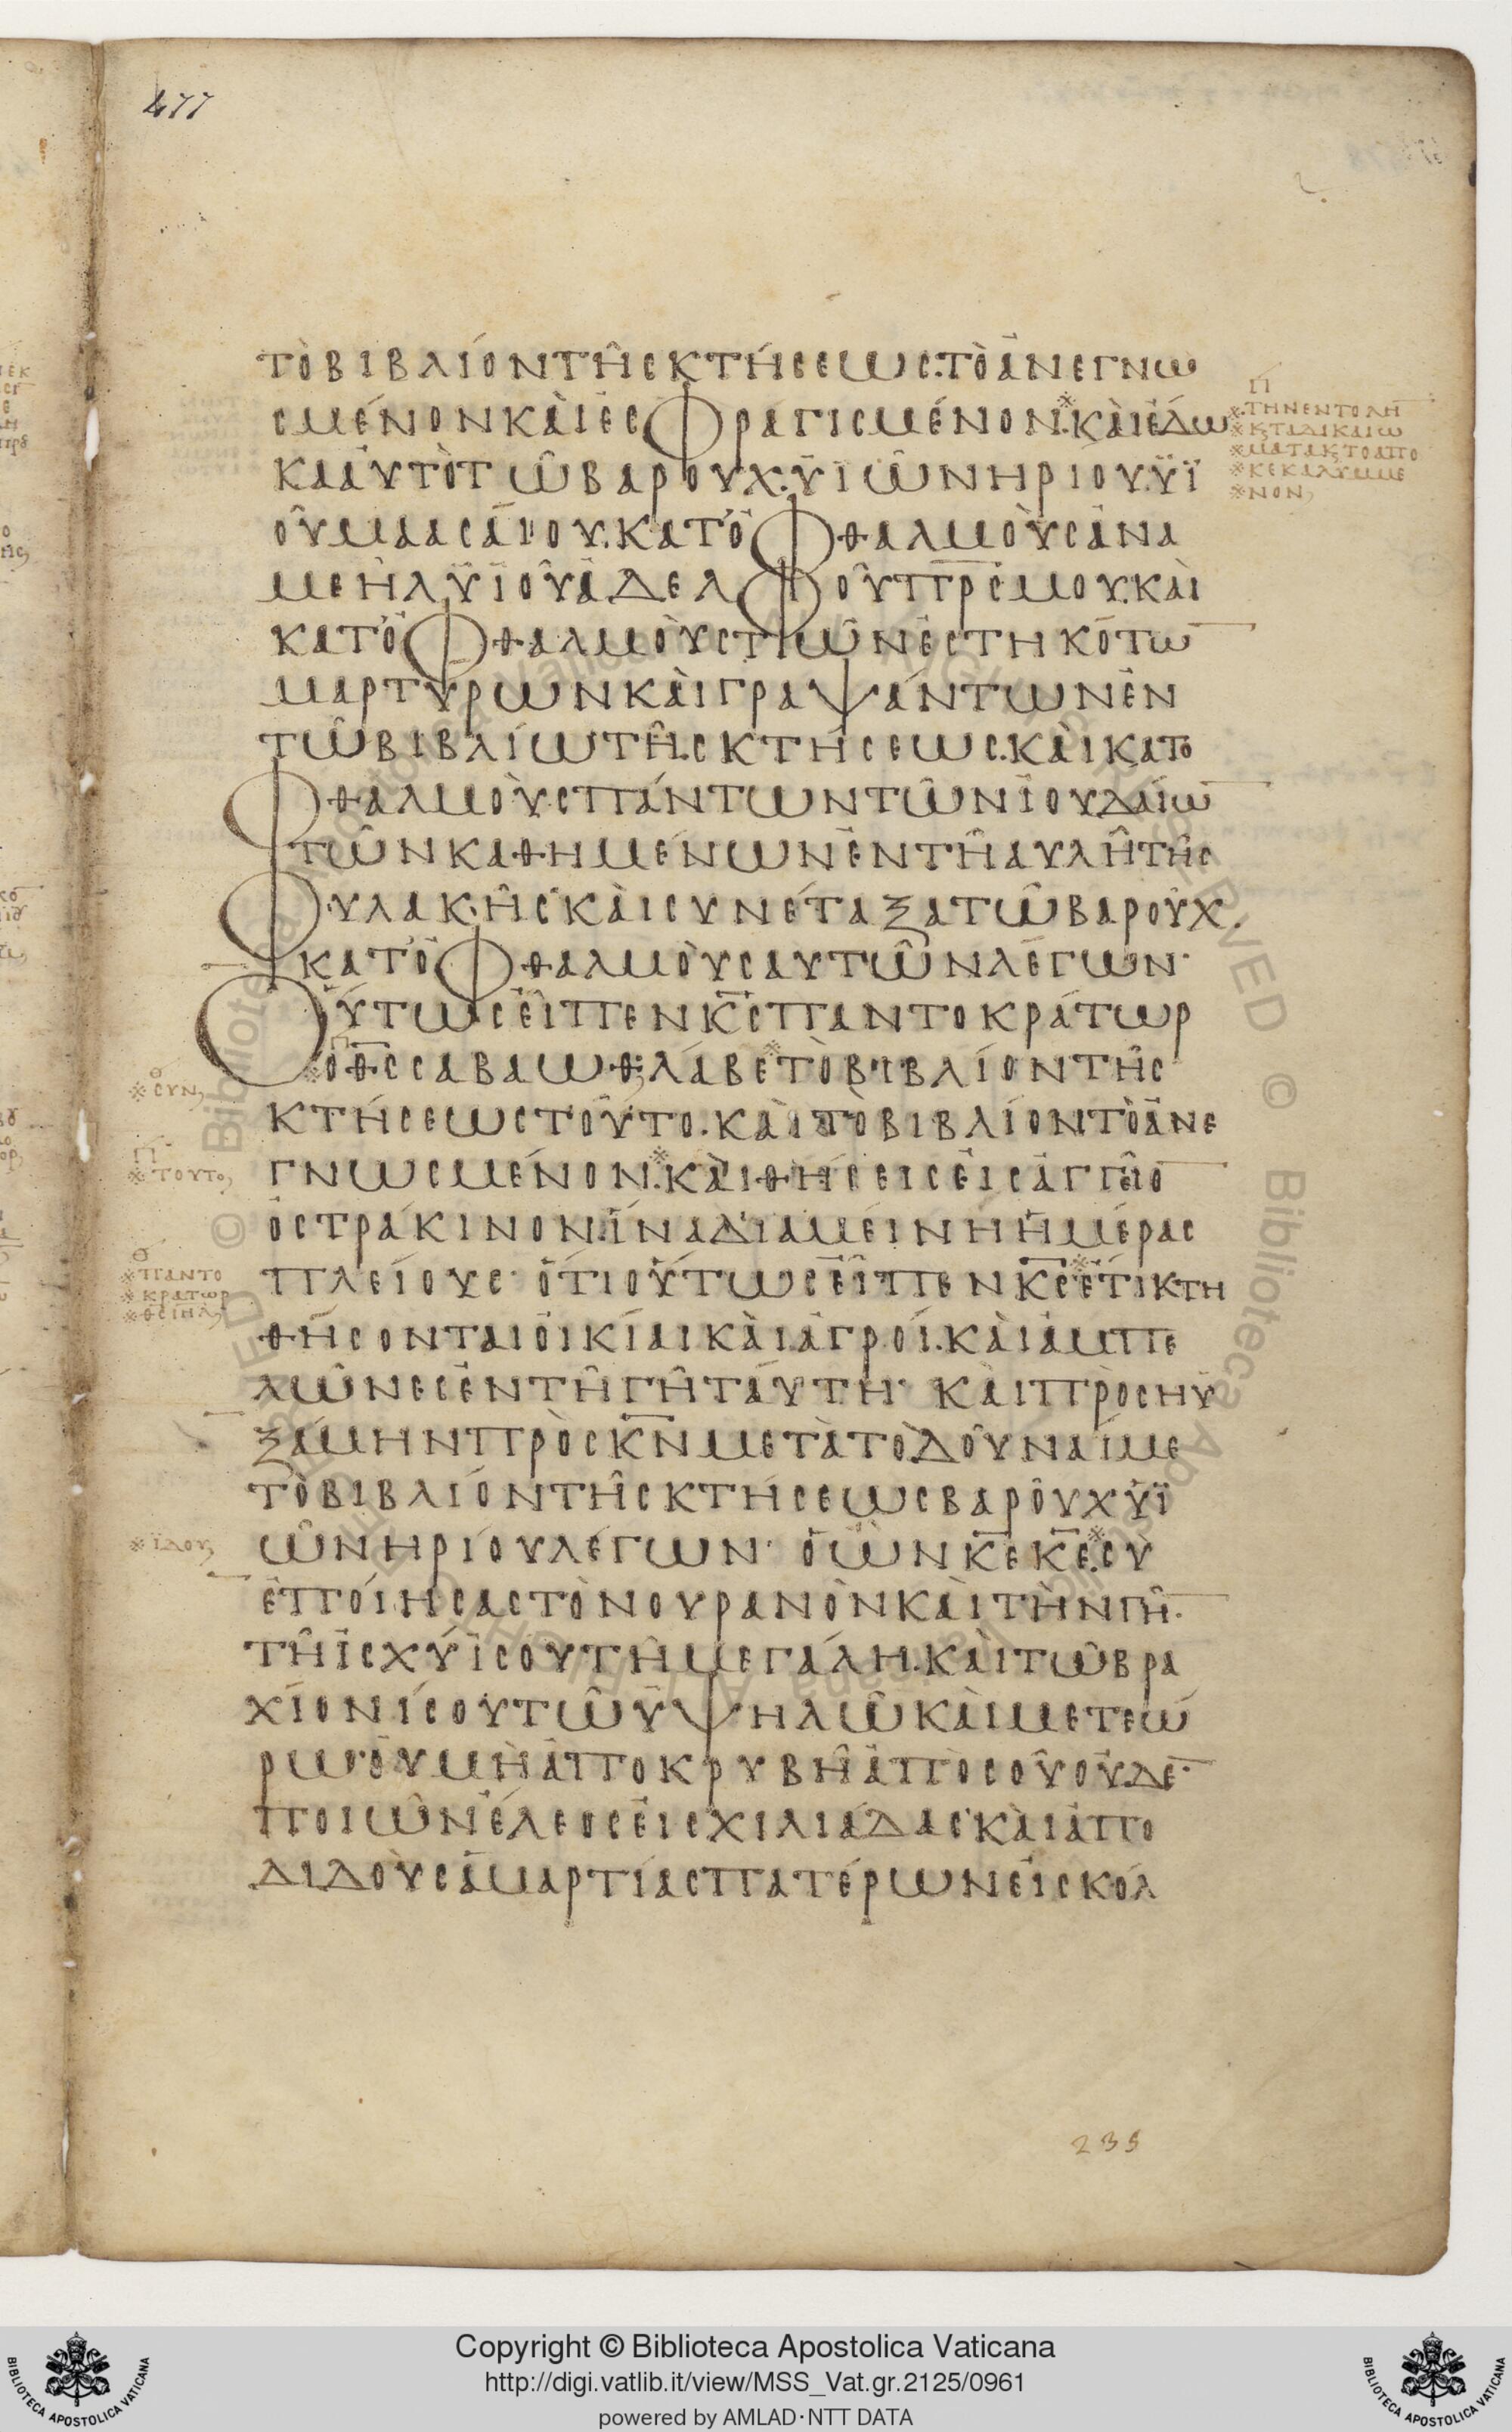 477
τὸβιβλίοντῆσκτήσεωσ·τὸἀνεγνω
σμένονκαὶἐσφραγισμένον·※καὶἔδω
κααὐτὸτῶβαρουχ·ϋἱῶνηρίου·ϋἱ
οῦμαασαίου·κατ'ὀφθαλμοὺσἀνα
μεὴλϋἱοῦἀδελφοῦπρσμου·καὶ
κατ'ὀφθαλμοὺστῶνἑστηκότω̅
μαρτύρωνκαὶγραψάντωνἐν
τῶβιβλίωτῆσκτήσεωσ·καὶκατο
φθαλμοὺσπάντωντῶνἰουδαίω̅
τῶνκαθημένωνἐντῆαυλῆτῆσ
φυλακῆσ·καὶσυνέταξατῶβαροὺχ·
κατ'ὀφθαλμοὺσαυτῶνλέγων·
Οὕτωσεἶπενκ̅σ̅παντοκράτωρ
※ὁθ̅σ̅σαβαωθ·λάβε※τὸβιβλίοντῆσ
κτήσεωστοῦτο·καὶτὸβιβλίοντὸἀνε
γνωσμένον·※καὶθήσεισεἰσἀγγεῖο̅
ὀστράκινον·ἵναδιαμείνηἡμέρασ
πλείουσ·ὅτιοὕτωσεἶπενκ̅σ̅※ἔτικτη
θήσονταιοἰκίαικαὶἀγροί·καὶἀμπε
λῶνεσἐντῆγῆταύτη·καὶπρὸσηυ
ξάμηνπρὸσκ̅ν̅μετὰτὸδοῦναίμε
τὸβιβλίοντῆσκτήσεωσβαροὺχϋἱ
ῶνηρίουλέγων·ὁὢνκ̅ε̅κ̅ε̅·※σὺ
ἐποίησαστὸνουρανὸνκαὶτὴνγῆ̅·
τῆἰσχύϊσουτῆμεγάλη·καὶτῶβρα
χίονίσουτῶὑψηλῶκαὶμετεώ
ρω·οὐμὴἀποκρυβῆἀπὸσοῦοὐδε̅·
ποιῶνἔλεοσεἰσχιλιάδασ·καὶἀπο
διδοὺσἁμαρτίασπατέρωνεἰσκόλ
π
※τηνεντολη̅
※κταδικαιω
※ματακτοαπο
※κεκαλυμμε
※νον
θ
※συν
π
※τουτο
θ
※παντο
※κρατωρ
※θσιηλ
※ϊδου
235
Copyright © Biblioteca Apostolica Vaticana
http://digi.vatlib.it/view/MSS_Vat.gr.2125/0961
powered by AMLAD·NTT DATA
BIBLIOTECA APOSTOLICA VATICANA
BIBLIOTECA APOSTOLICA VATICANA